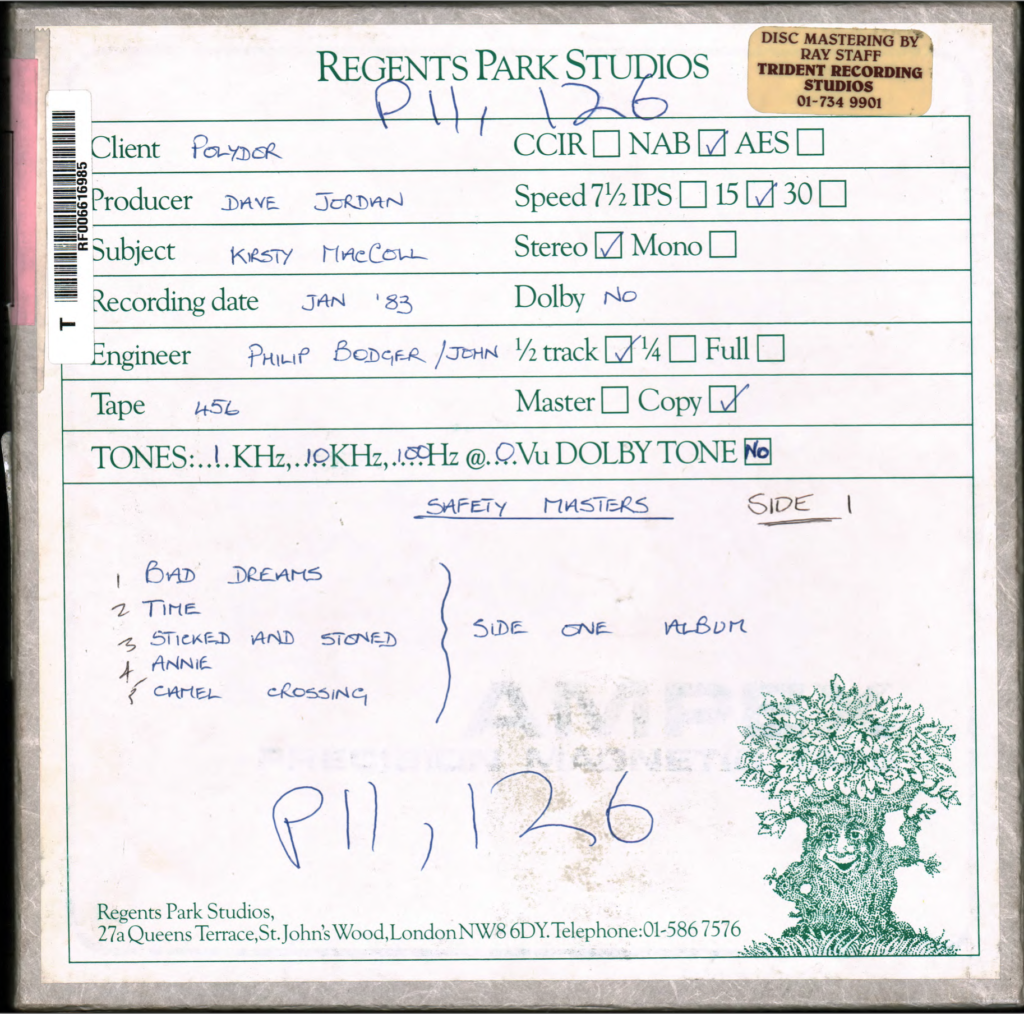 REGENTS PARK STUDIOS
DISC MASTERING BY
RAY STAFF
TRIDENT RECORDING
STUDIOS
01-734 9901
P11,126
Client POLYDOR
CCIR NAB ✓ AES
Producer DAVE JORDAN
Speed 7½ IPS 15 ✓ 30
Subject KIRSTY MACCOLL
Stereo ✓ Mono
RF006616985
T
Recording date JAN '83
Dolby NO
Engineer PHILIP BODGER / JOHN
½ track ✓ ¼ Full
Tape 456
Master Copy ✓
TONES:..1.KHz,.10KHz,.100Hz @..0.Vu DOLBY TONE No
SAFETY MASTERS SIDE 1
1 BAD DREAMS
2 TIME
3 STICKED AND STONED
4 ANNIE
5 CAMEL CROSSING
SIDE ONE ALBUM
AMPEX
PRECISION MAGNETIC
P11,126
Regents Park Studios,
27a Queens Terrace, St. John's Wood, London NW8 6DY. Telephone: 01-586 7576